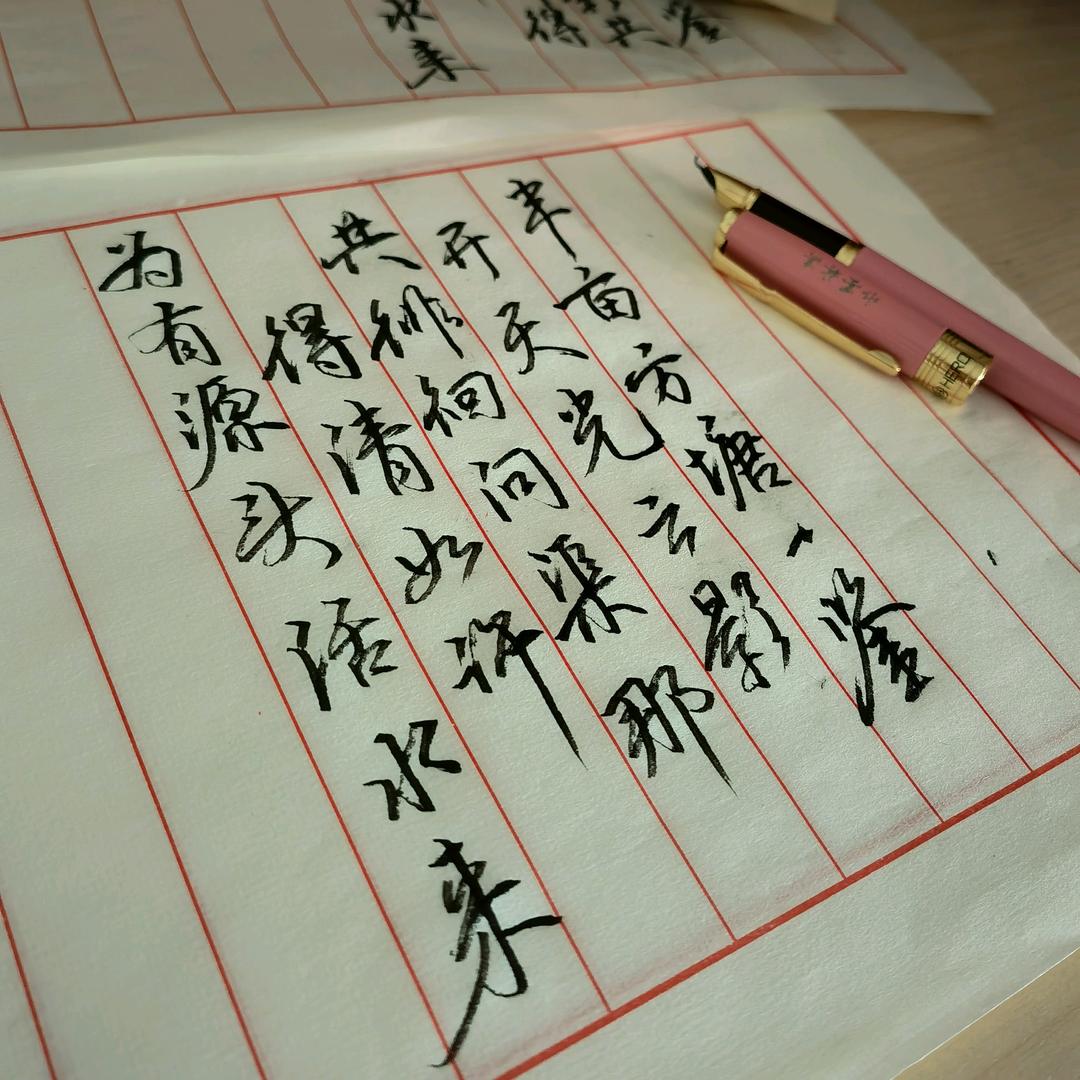 鉴
影共
得
水来
半亩方塘一鉴
开天光云影
共徘徊问渠那
得清如许
为有源头活水来
HERO